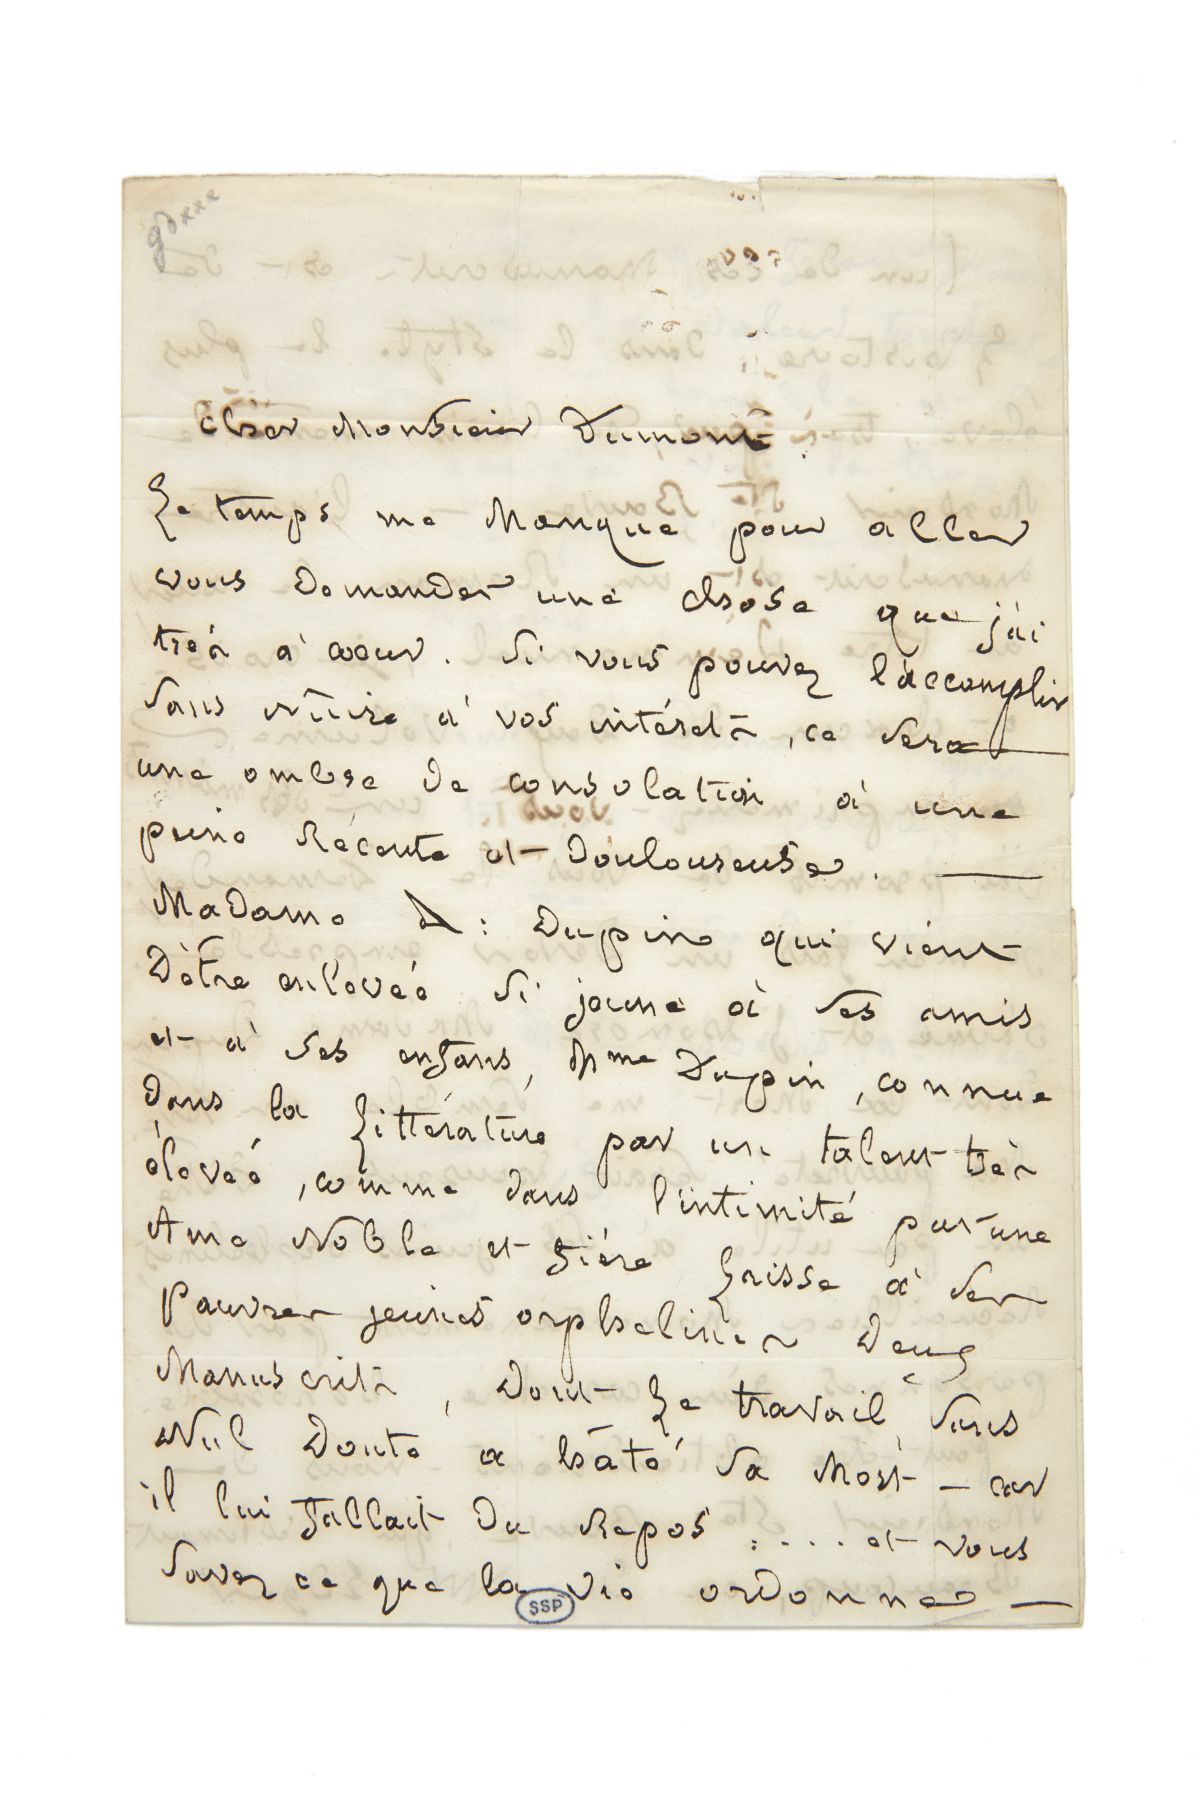 Cher Monsieur Dumont
Le temps me Manque pour aller
vous Demander une chose que j'ai
très à cœur. Si vous pouvez l'accomplir
sans Nuire à vos intérets, ce sera
une ombre de consolation à une
peine Récente et douloureuse. —
Madame A: Dupin qui vient
D'être enlevée si jeune à ses amis
et à ses enfans, Mme Dupin, connue
dans la Littérature par un talent très
élevée, comme dans l'intimité par une
Ame Noble et fière Laisse à ses
pauvres jeunes orphelines Deux
Manuscrits, Dont Le travail, sans
Nul Doute a hâté sa Mort — car
il lui fallait Du Repos .... et vous
savez ce que la vie ordonne —
SSP